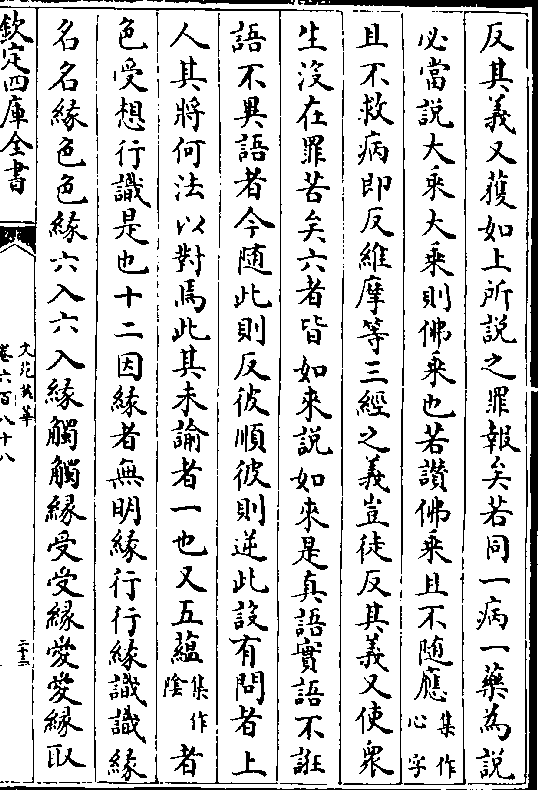 反其義又獲如上所說之罪報矣若同一病一藥為說
必當說大乘大乘則佛乘也若讚佛乘且不隨應集作心字
且不救病即反維摩等三經之義豈徒反其義又使衆
生沒在罪苦矣六者皆如來說如來是真語實語不誑
語不異語者今隨此則反彼順彼則逆此設有問者上
人其將何法以對焉此其未諭者一也又五蘊集作陰者
色受想行識是也十二因緣者無明緣行行緣識識緣
名名緣色色緣六入六入緣觸觸緣受受緣愛愛緣取
欽定四庫全書
文苑英華
卷六百八十八
二十三